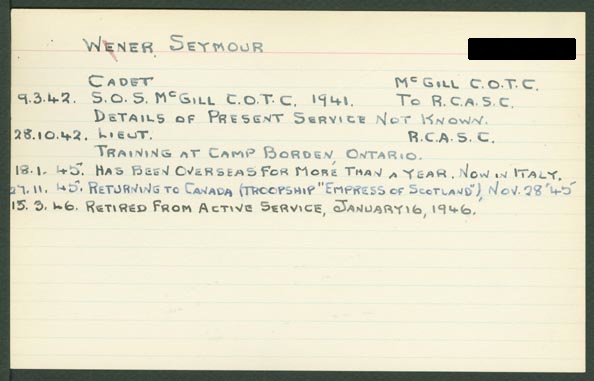 WENER, SEYMOUR
CADET McGILL C.O.T.C.
9.3.42. S.O.S. McGILL C.O.T.C. 1941. TO R.C.A.S.C.
DETAILS OF PRESENT SERVICE NOT KNOWN.
28.10.42. LIEUT. R.C.A.S.C.
TRAINING AT CAMP BORDEN, ONTARIO.
18.1.45. HAS BEEN OVERSEAS FOR MORE THAN A YEAR. NOW IN ITALY.
27.11.45. RETURNING TO CANADA (TROOPSHIP "EMPRESS OF SCOTLAND"), NOV. 28 '45
15.3.46. RETIRED FROM ACTIVE SERVICE, JANUARY 16, 1946.